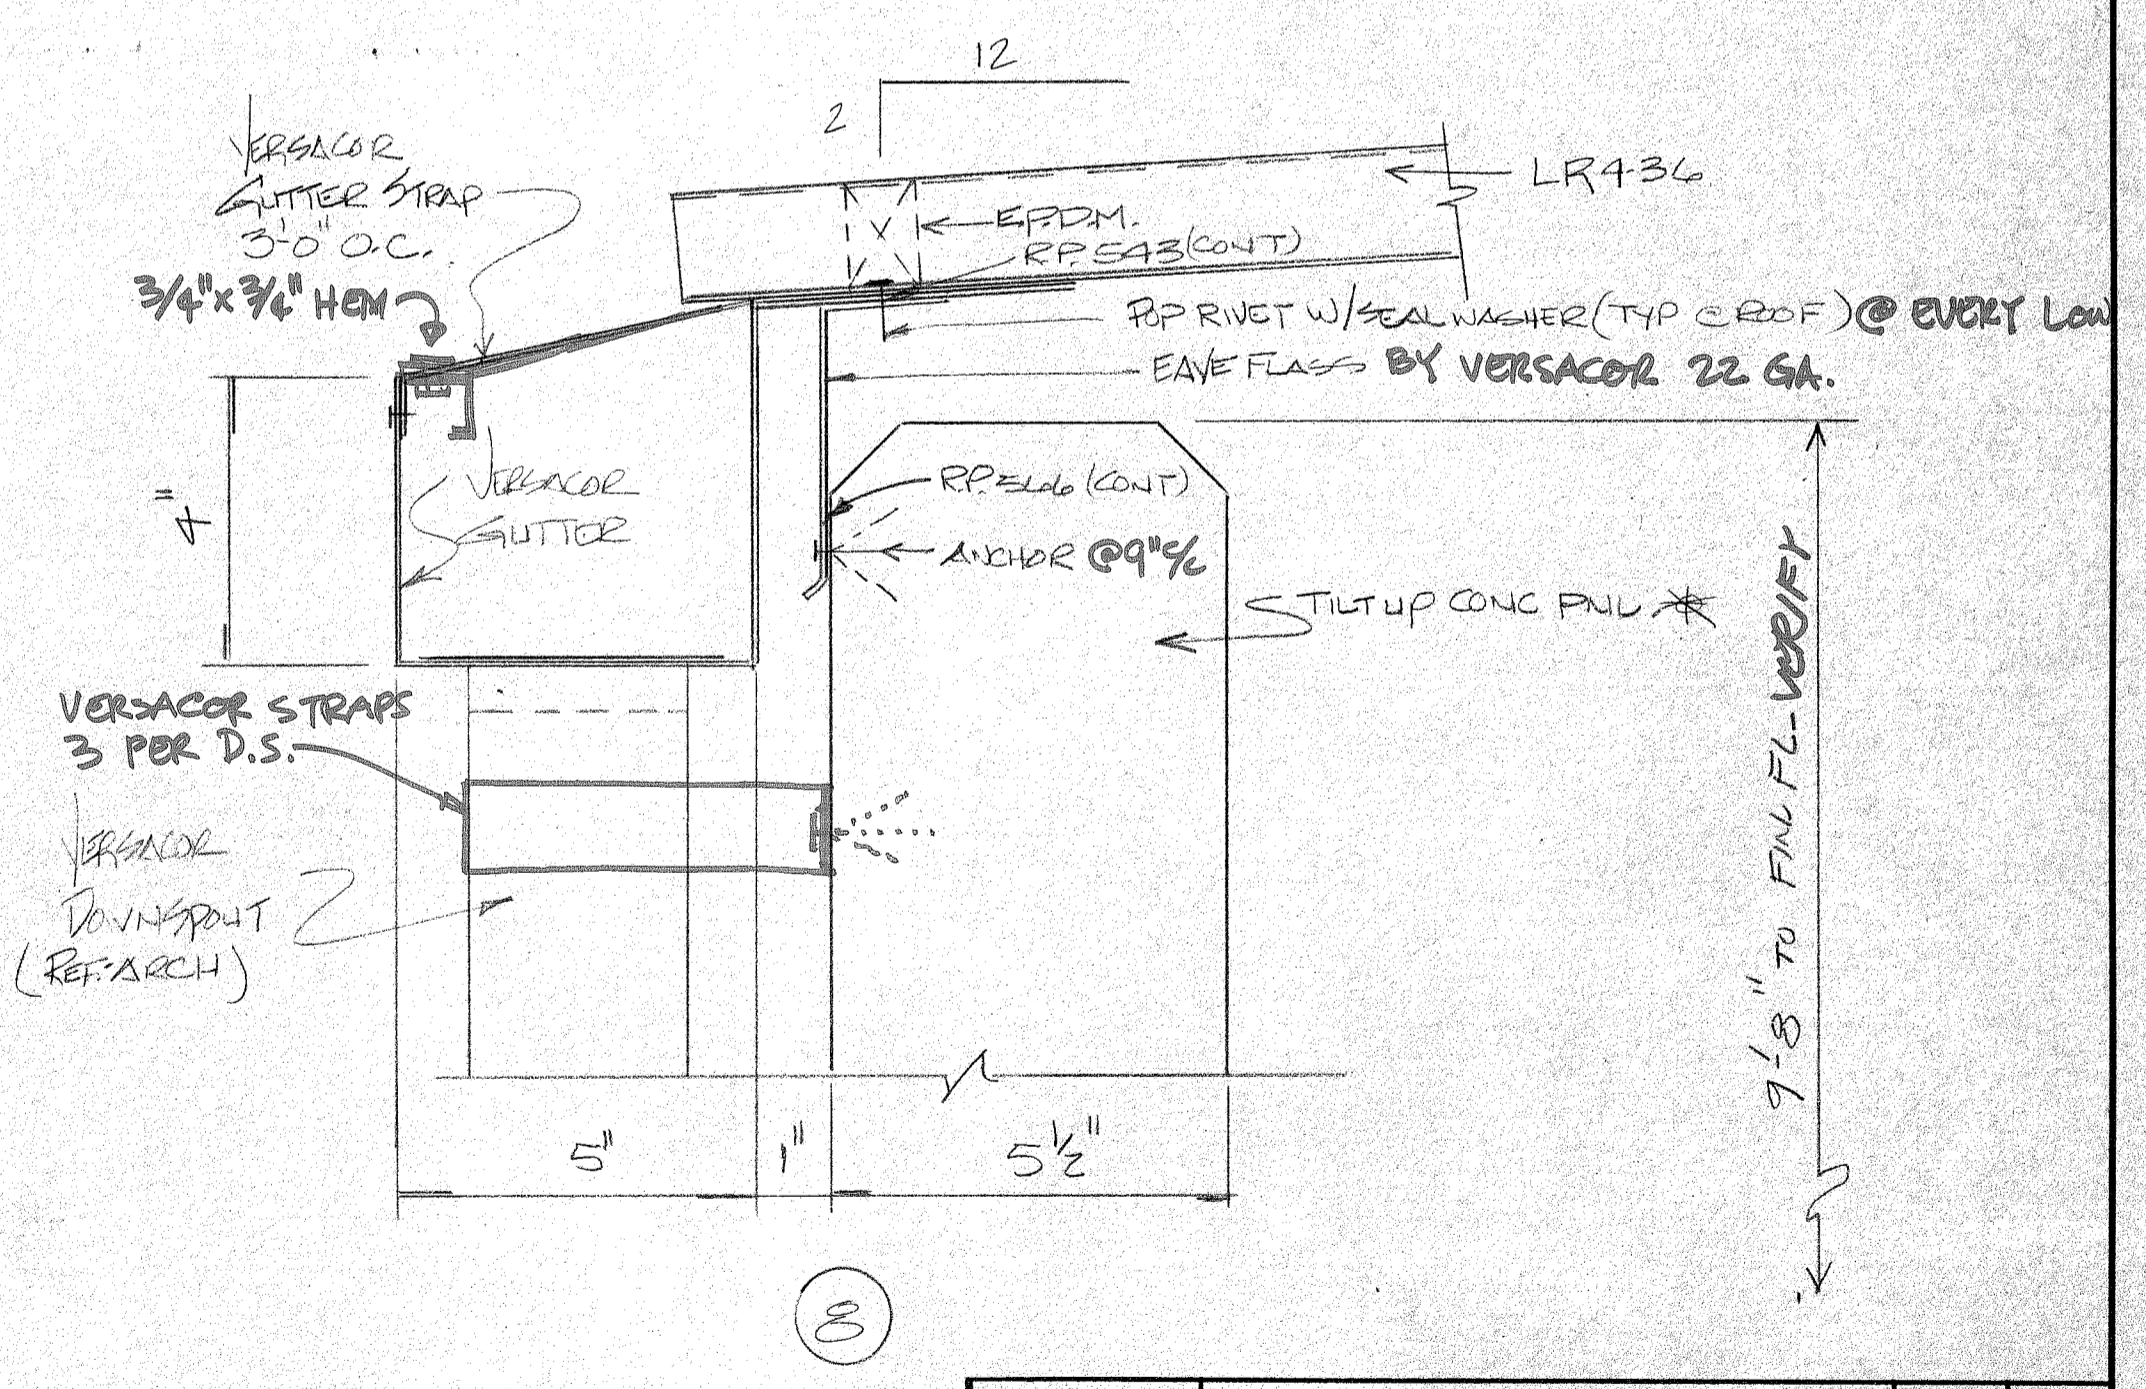 12
2
VERSACOR
GUTTER STRAP
3'-0" O.C.
3/4" x 3/4" HEM
LR4-36
E.P.D.M.
R.P. 543 (CONT)
POP RIVET W/SEAL WASHER (TYP @ ROOF) @ EVERY LOW
EAVE FLASG BY VERSACOR 22 GA.
4"
VERSACOR
GUTTER
R.P. 566 (CONT)
ANCHOR @ 9" c/c
TILT UP CONC PNL *
VERSACOR STRAPS
3 PER D.S.
VERSACOR
DOWNSPOUT
(REF: ARCH)
9'-8" TO FINL FL - VERIFY
5"
1"
5 1/2"
8